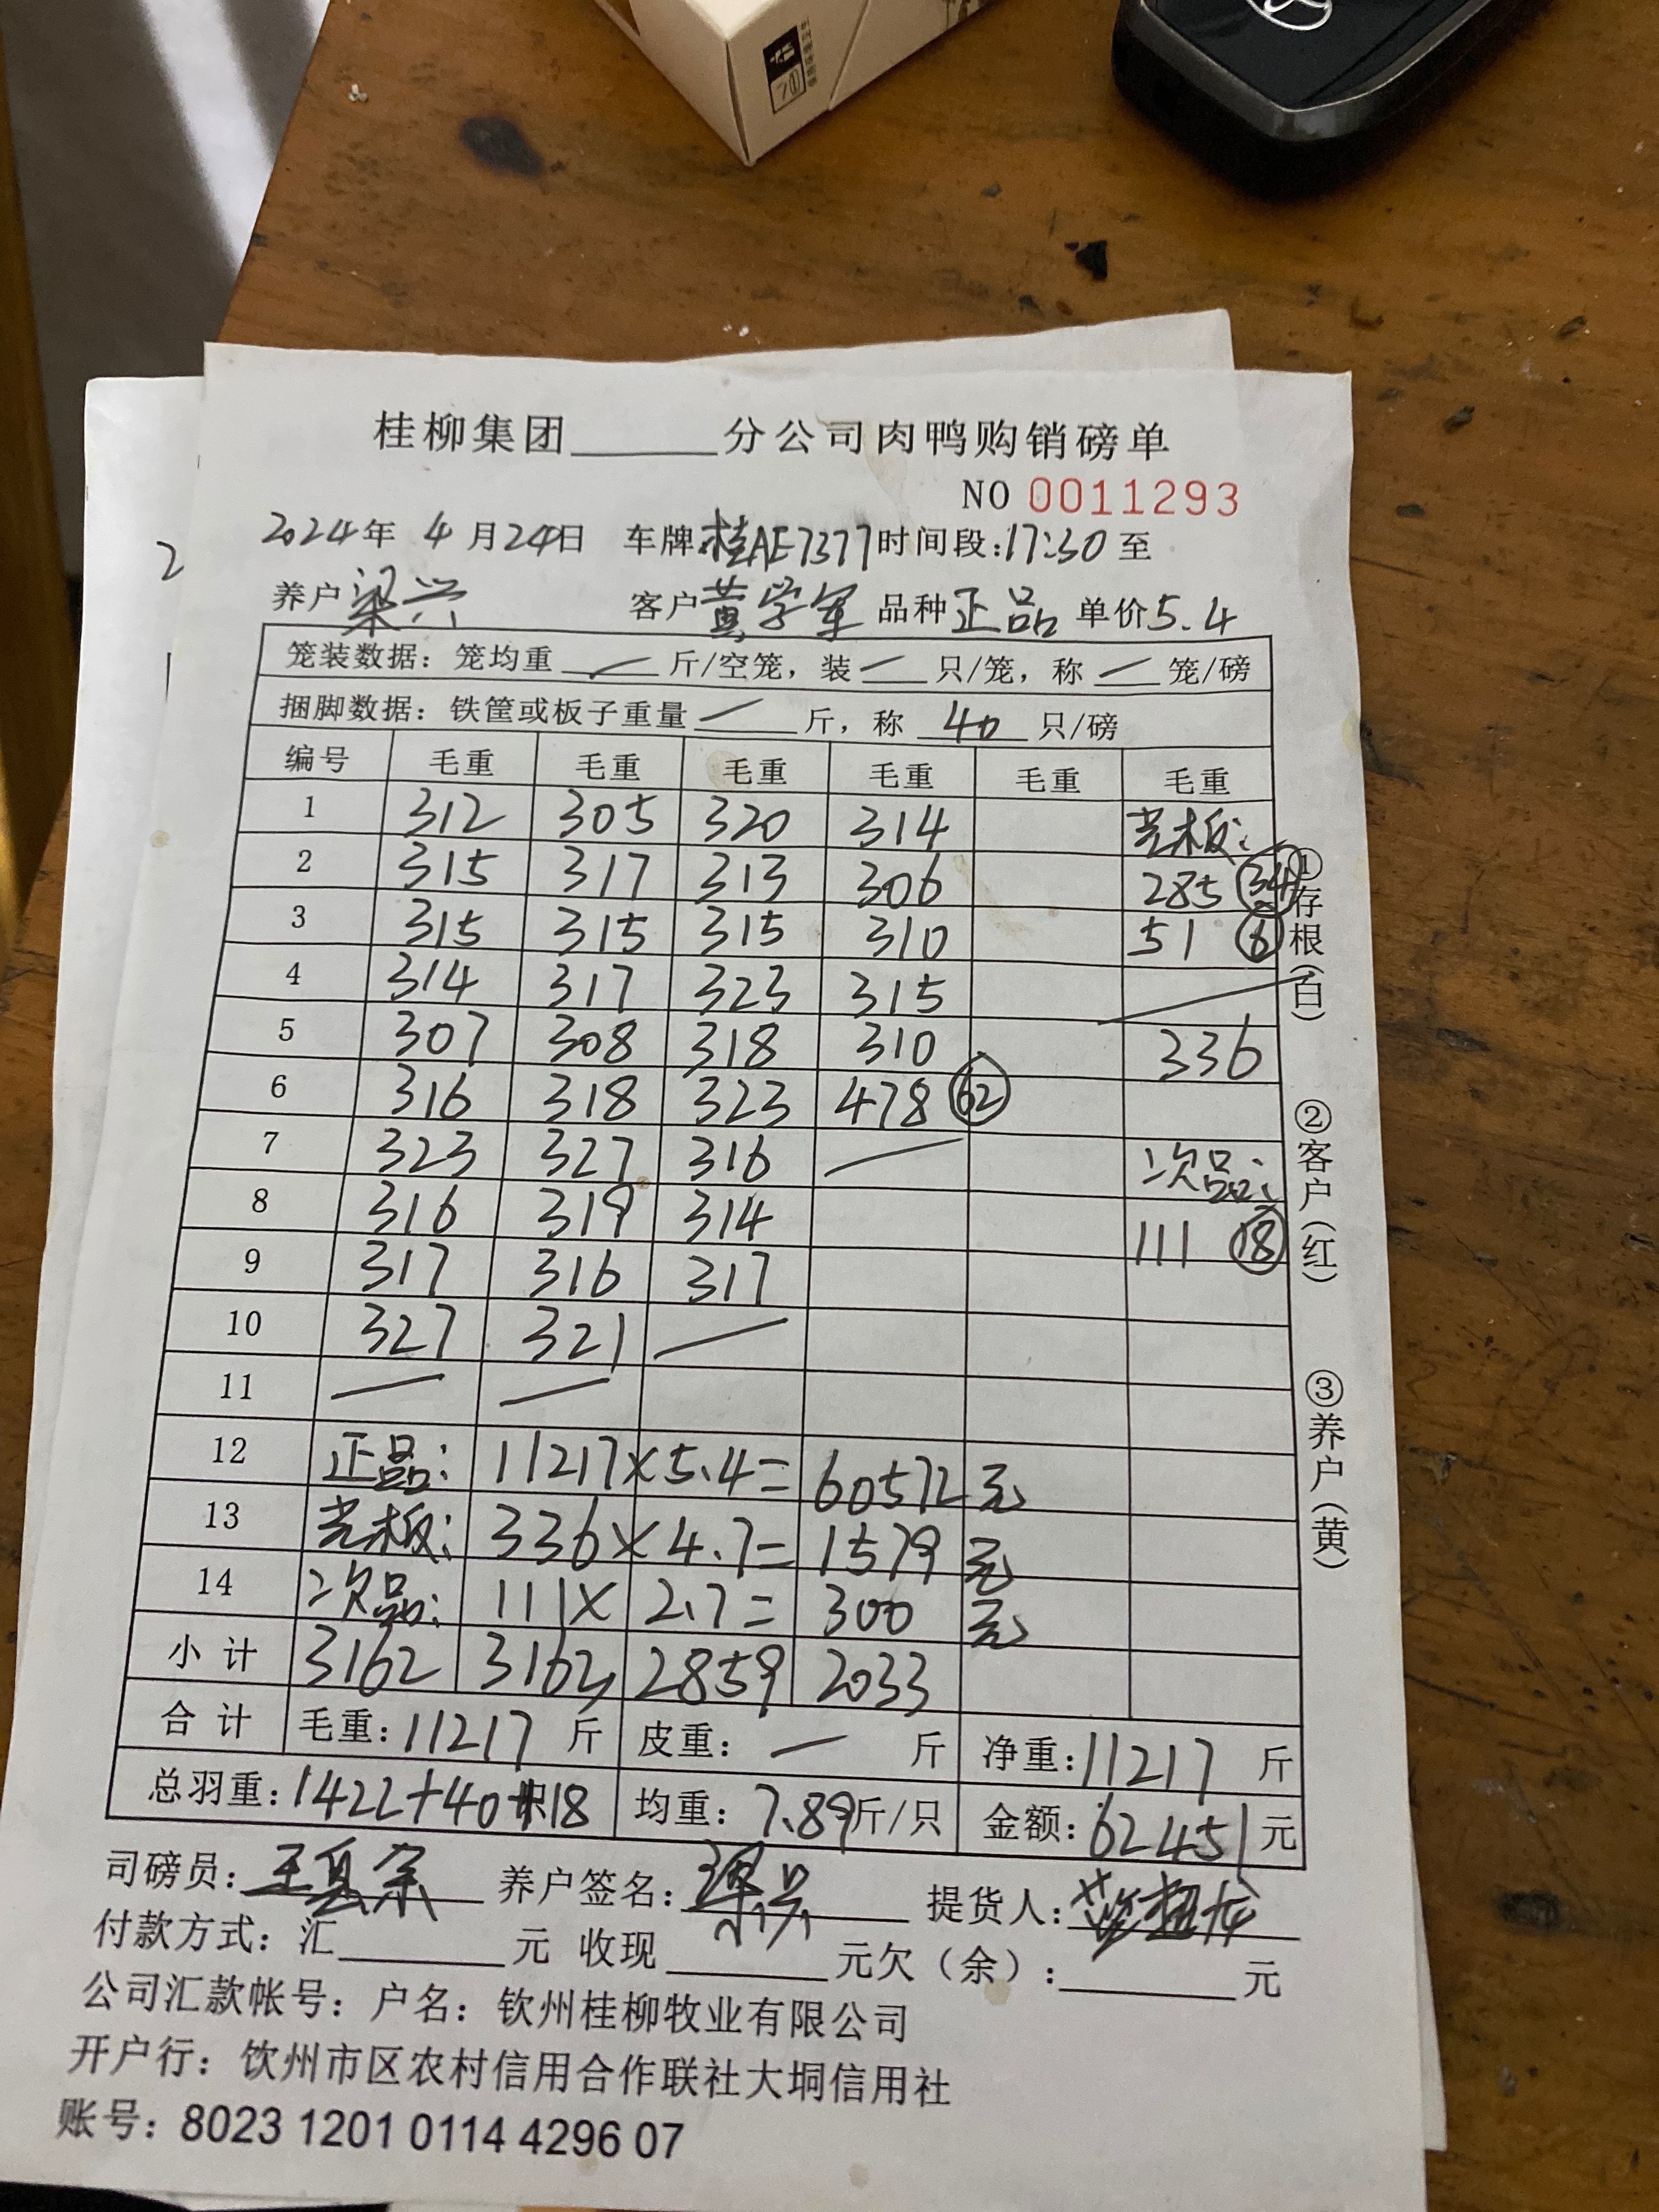 桂柳集团______分公司肉鸭购销磅单
NO 0011293
2024年 4月24日 车牌:桂AE7377 时间段:17:30 至
养户 梁兴 客户 黄学军 品种 正品 单价 5.4
笼装数据：笼均重 — 斤/空笼，装 — 只/笼，称 — 笼/磅
捆脚数据：铁筐或板子重量 — 斤，称 40 只/磅
编号 毛重 毛重 毛重 毛重 毛重 毛重
1 312 305 320 314 光板:
2 315 317 313 306 285 34
3 315 315 315 310 51 6
4 314 317 323 315
5 307 308 318 310 336
6 316 318 323 478 62
7 323 327 316 — 次品:
8 316 319 314 111 18
9 317 316 317
10 327 321 —
11 — —
12 正品: 11217×5.4= 60572元
13 光板: 336×4.7= 1579元
14 次品: 111×2.7= 300元
小计 3162 3162 2859 2033
合计 毛重:11217 斤 皮重: — 斤 净重:11217 斤
总羽重:1422+40+18 均重:7.89斤/只 金额:62451元
司磅员: 养户签名:梁兴 提货人:
付款方式：汇______元 收现______元欠（余）:______元
公司汇款帐号：户名：钦州桂柳牧业有限公司
开户行：钦州市区农村信用合作联社大垌信用社
账号：8023 1201 0114 4296 07
①存根(白)
②客户(红)
③养户(黄)